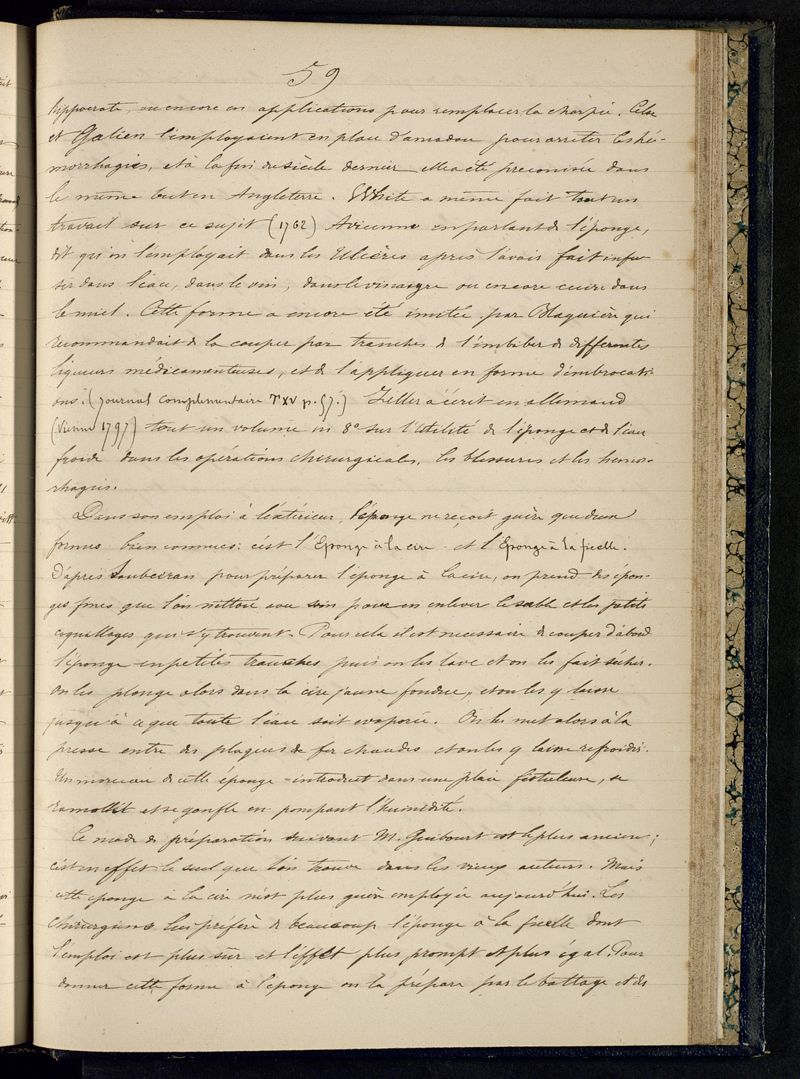 59
hippocrate, ou encore en applications pour remplacer la charpie. Celse
et Galien l'employaient en place d'amadou pour arrêter les hé-
morrhagies, et à la fin du siècle dernier elle a été preconisée dans
le même but en Angleterre. White a même fait tout un
travail sur ce sujet (1762) Avicenne en parlant de l'éponge,
dit qu'on l'employait dans les Ulcères apres l'avoir fait infu-
ser dans l'eau, dans le vin, dans le vinaigre ou encore cuire dans
le miel. Cette forme a encore été imitée par Blaquière qui
recommandait de la couper par tranches de l'imbiber de differentes
liqueurs médicamenteuses, et de l'appliquer en forme d'embrocati-
ons. (Journal complementaire T XV p. 57.) Zeller a écrit en allemand
(Vienne 1797) tout un volume in 8° sur l'Utilité de l'éponge et de l'eau
froide dans les opérations chirurgicales, les blessures et les hemor-
rhagies.
Dans son emploi à l'extérieur, l'éponge ne reçoit guère que deux
formes bien connues: c'est l'Eponge à la cire et l'Eponge à la ficelle.
D'après Soubeiran pour préparer l'éponge à la cire, on prend des épon-
ges fines que l'on nettoie avec soin pour en enlever le sable et les petits
coquillages qui s'y trouvent. Pour cela il est necessaire de couper d'abord
l'éponge en petites tranches puis on les lave et on les fait sécher.
On les plonge alors dans la cire jaune fondue, et on les y laisse
jusqu'à ce que toute l'eau soit evaporée. On les met alors à la
presse entre des plaques de fer chaudes et on les y laisse refroidir.
Un morceau de cette éponge introduit dans une plaie fistuleuse, se
ramollit et se gonfle en pompant l'humidité.
Ce mode de préparation suivant M. Guibourt est le plus ancien;
c'est en effet le seul que l'on trouve dans les vieux auteurs. Mais
cette eponge à la cire n'est plus guère employée aujourd'hui. Les
Chirurgiens lui préfère de beaucoup l'éponge à la ficelle dont
l'emploi est plus sûr et l'effet plus prompt et plus égal. Pour
donner cette forme à l'éponge on la prépare par le battage et des